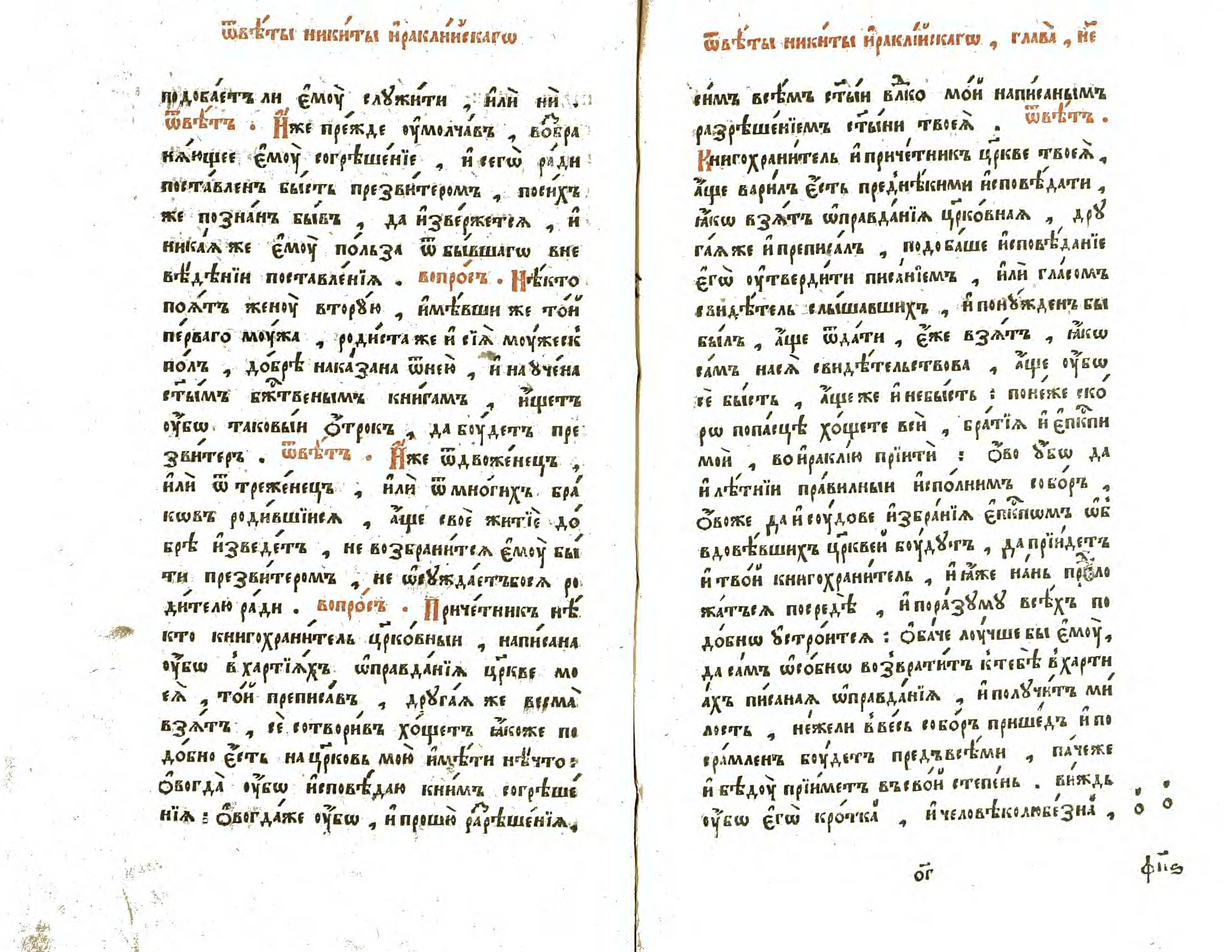 ѿвѣ́ты ники́ты и҆ракли́йскагѡ
подоба́етъ ли є҆моу̀ служи́ти , и҆лѝ нѝ .
ѿвѣ́тъ . И҆́же пре́жде оу҆молча́въ , во́бра
ня́ющее є҆моу̀ согрѣше́нїе , и҆ сегѡ̀ ра́ди
поста́вленъ бы́сть презви́теромъ , посиⷯхъ
же позна́нъ бы́въ , да и҆зве́ржется , и҆
ника́я же є҆моу̀ по́льза ѿ бы́вшагѡ вне
вѣ́дѣнїи поставле́нїя . вопро́съ . Нѣ́кто
поя́тъ женоу̀ втору́ю , и҆мѣ́вши же то́й
пе́рваго моу́жа , роди́ста же и҆ сїя̀ моу́жеск
по́лъ , до́брѣ нака́зана ѿ нею̀ , и҆ на у҆че́на
ст҃ы́мъ бж҃твенымъ кни́гамъ , и҆́щетъ
оу҆́бѡ таковы́и ѻ҆́трокъ , да боу́детъ пре
зви́теръ . ѿвѣ́тъ . И҆́же ѿ двоже́нецъ ,
и҆лѝ ѿ треже́нецъ , и҆лѝ ѿ мно́гихъ бра́
кѡвъ роди́вшїися , а҆́ще своѐ житїѐ до́
брѣ и҆зведе́тъ , не возбрани́тся є҆моу̀ бы́
ти презви́теромъ , не ѡ҆сужда́етъбося ро
ди́телю ра́ди . вопро́съ . Приче́тникъ нѣ́
кто книгохрани́тель цр҃ко́вныи , напи́сана
оу҆́бѡ в ха́ртїяхъ ѡ҆правда́нїя цр҃кве мо
ея̀ , то́й преписа́въ , друга́я же весма̀
взя́тъ , сѐ сотвори́въ хо́щетъ ꙗ҆́коже по
до́бно є҆́сть на цр҃ковь мою̀ и҆мѣ́ти нѣ́что :
ѻ҆вогда̀ оу҆́бѡ и҆сповѣ́даю к ни́мъ согрѣше́
нїя : ѻ҆вогда́же оу҆́бѡ , и҆ прошю̀ раⷥрѣше́нїя ,
ѿвѣ́ты ники́ты и҆раклі́йскагѡ , глава̀ , н҃е
си́мъ всѣ́мъ ст҃ы́и влⷣко мо́й написаны́мъ
разрѣше́нїемъ ст҃ы́ни твоея̀ . ѿвѣ́тъ .
Книгохрани́тель и҆ приче́тникъ цр҃кве твоея̀ ,
а҆́ще вари́лъ є҆́сть пред ни́кими и҆сповѣ́дати ,
ꙗ҆́кѡ взя́тъ ѡ҆правда́нїя цр҃ко́вная , дру
га́я же и҆ преписа́лъ , подоба́ше и҆сповѣ́данїе
є҆гѡ̀ оу҆тверди́ти писа́нїемъ , и҆лѝ гла́сомъ
свидѣ́тель слы́шавшихъ , и҆ пону́жденъ бы
бы́лъ , а҆́ще ѿда́ти , є҆́же взя́тъ , ꙗ҆́кѡ
са́мъ на ся̀ свидѣ́тельствова , а҆́ще оу҆́бѡ
сѐ бы́сть , а҆́ще же и҆ небы́сть : поне́же ско́
рѡ по па́сцѣ хо́щете всѝ , бра́тїя и҆ є҆пкⷭ҇пи
моѝ , во и҆ракли́ю прїитѝ : ѻ҆́во у҆́бѡ да
и҆ лѣ́тнїи пра́вилныи и҆спо́лнимъ собо́ръ ,
ѻ҆́воже да и҆ соу́дове и҆збра́нїя є҆пкⷭ҇пѡмъ ѡ҆б̾
вдовѣ́вшихъ цр҃кве́й боу́дутъ , да прїи́детъ
и҆ тво́й книгохрани́тель , и҆ ꙗ҆́же на́нь преⷣло
жа́тъся посредѣ̀ , и҆ по ра́зуму всѣ́хъ по
до́бнѡ у҆стро́ится : ѻ҆ба́че лоу́чше бы є҆моу̀ ,
да са́мъ ѡ҆со́бнѡ возврати́тъ к тебѣ̀ в ха́рти
а́хъ пи́саная ѡ҆правда́нїя , и҆ получи́тъ ми́
лость , не́жели в ве́сь собо́ръ прише́дъ и҆ по
сра́мленъ боу́детъ предъ всѣ́ми , па́чеже
и҆ бѣдоу̀ прїи́метъ въ сво́й степе́нь . ви́ждь
оу҆́бѡ є҆гѡ̀ кро́тка , и҆ человѣколюбе́зна ,
о҃г
фп҃ѕ